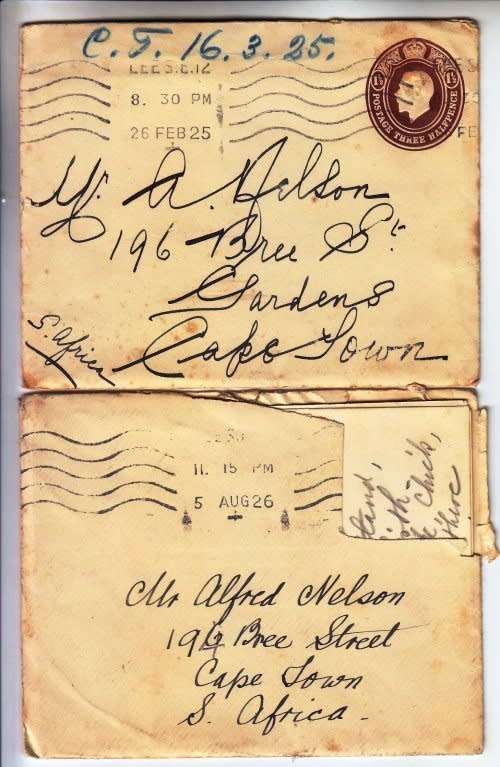 C. T. 16. 3. 25.
LEE S.E.12
8. 30 PM
26 FEB 25
POSTAGE THREE HALFPENCE
1½
1½
FE
Mr. A. Nelson
196 Bree St.
Gardens
Cape Town
S. Africa
11. 15 PM
5 AUG 26
Chick,
there
Mr Alfred Nelson
196 Bree Street
Cape Town
S. Africa.